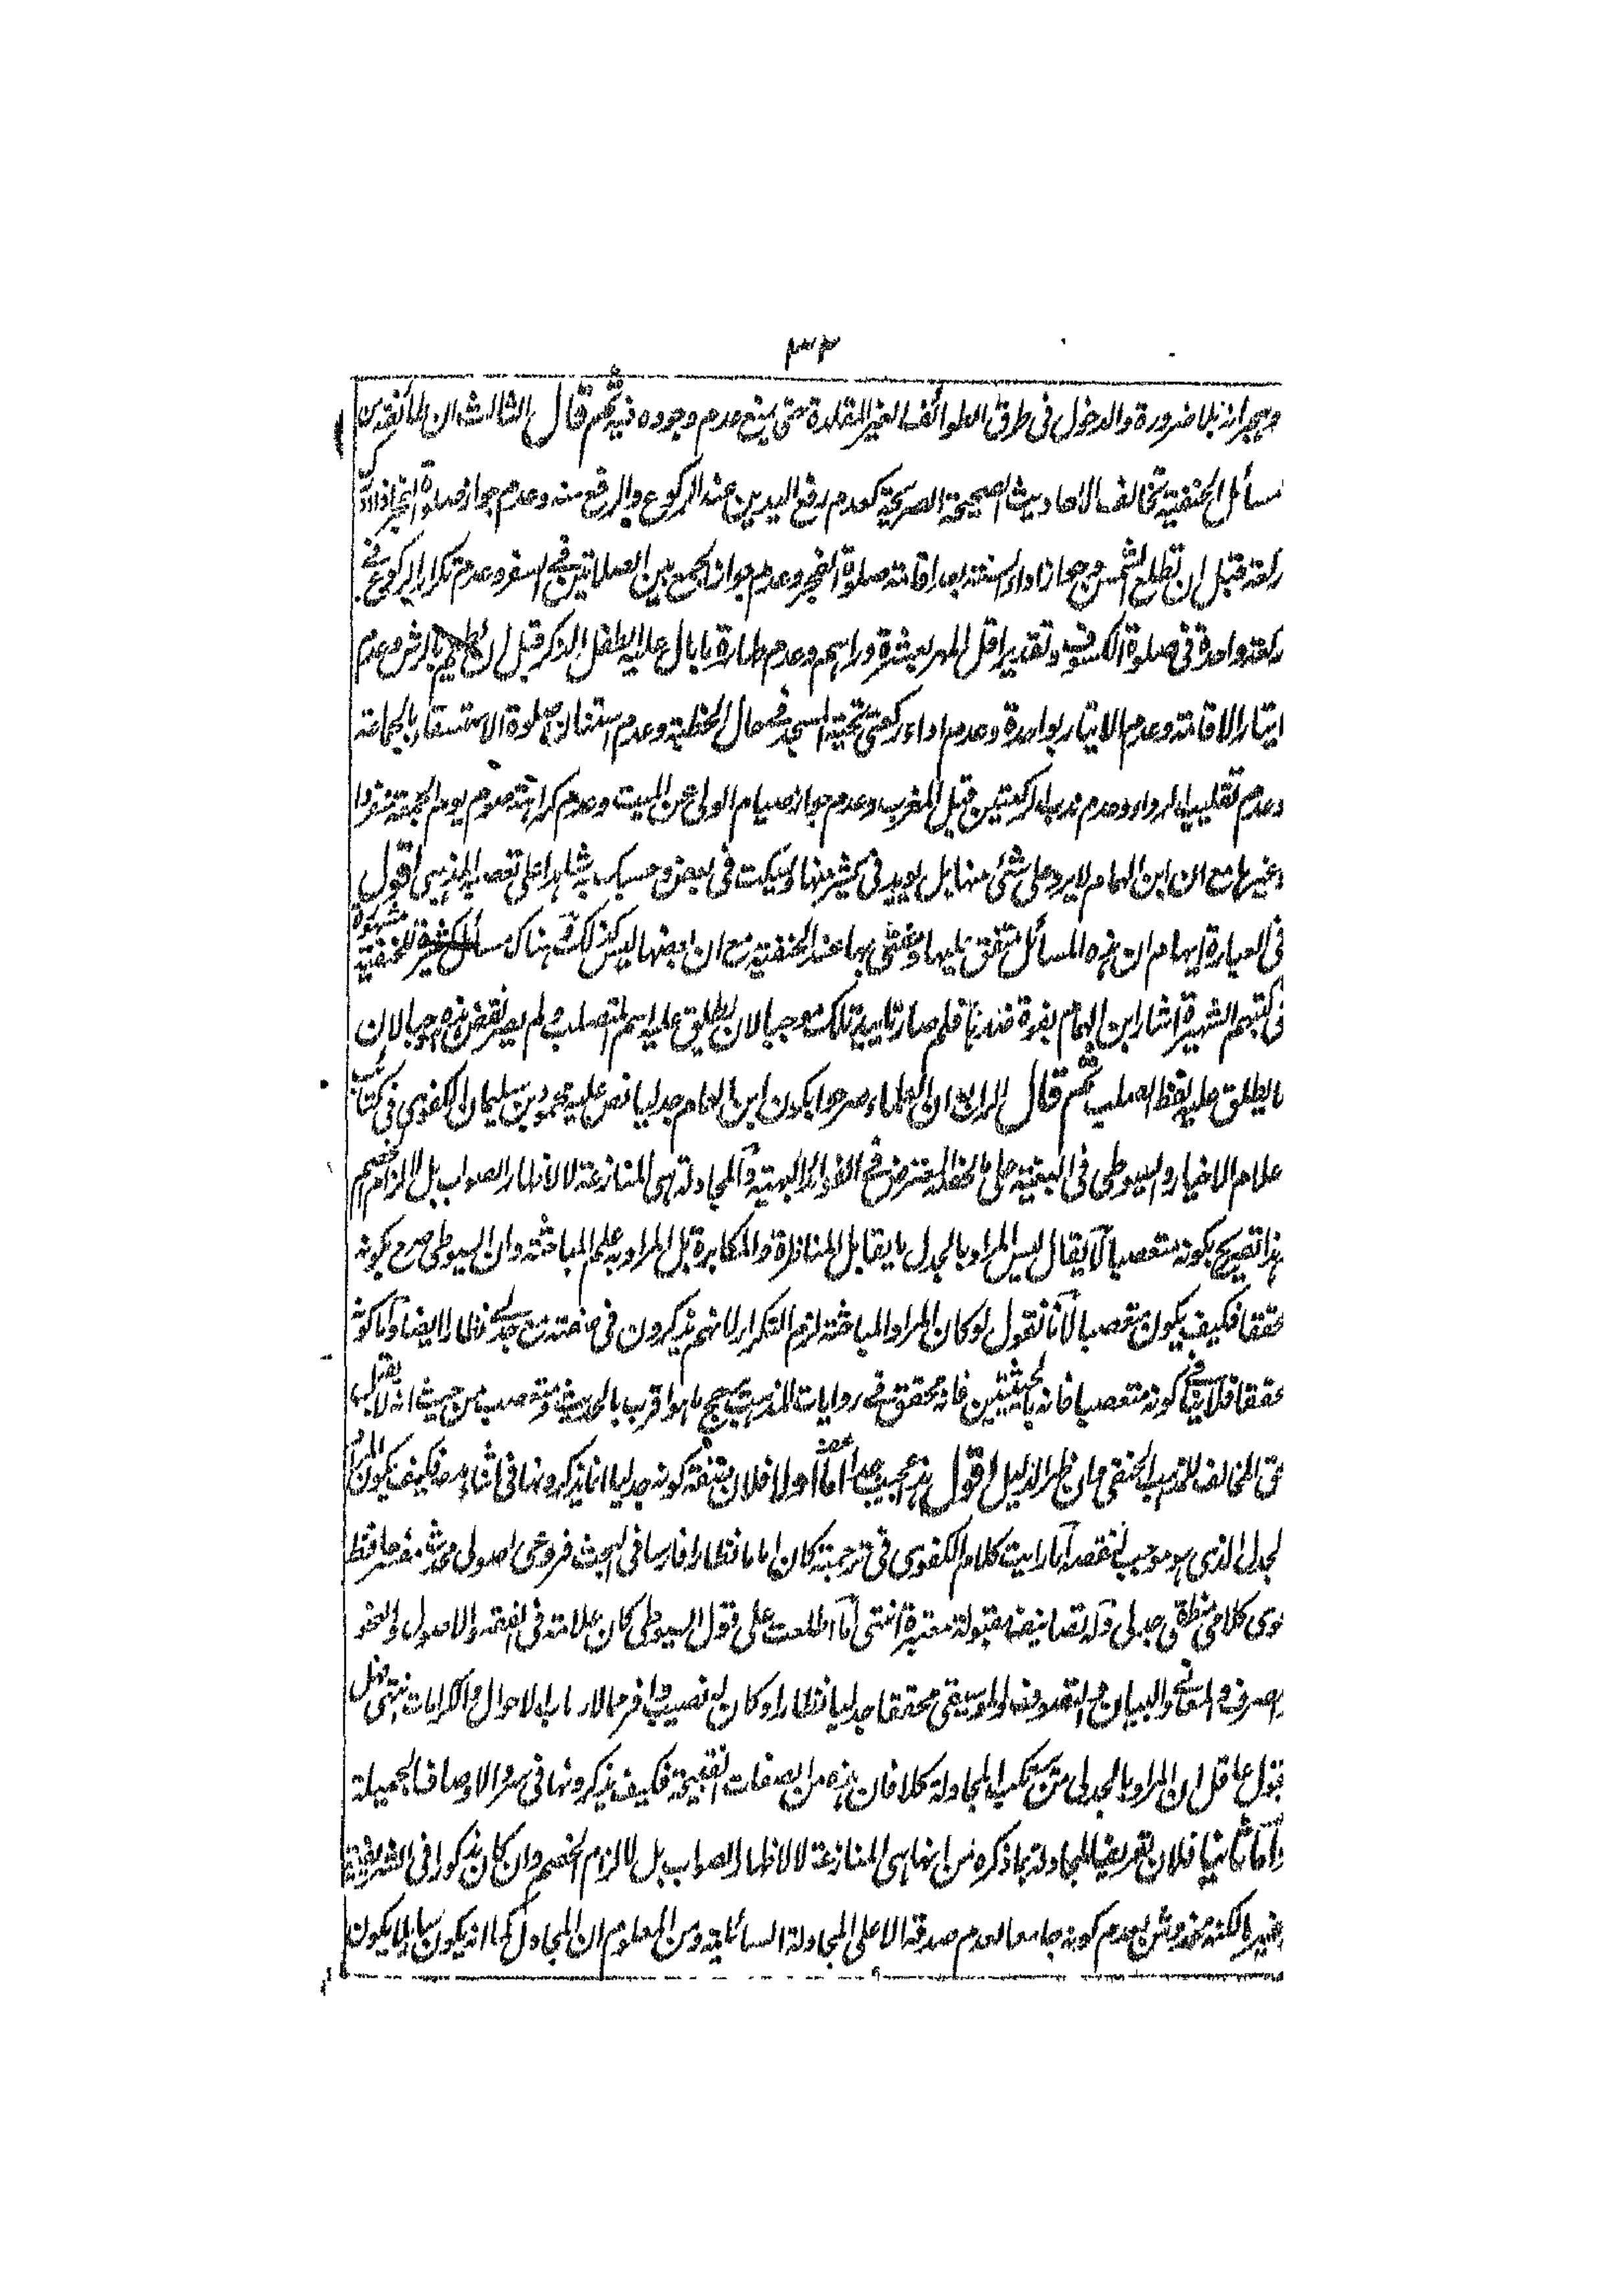 ٣٣
وهجرانه بلا ضرورة والدخول في طرق الطوائف الغير المقلدة حتى ينع عدم وجوده فيه ثم قال الثالث ان طائفة من
مسائل الحنفية تخالف الاحاديث الصحيحة الصريحة كعدم رفع اليدين عند الركوع والرفع منه وعدم جواز صلوة الفجر اذا ادرك
ركعة قبل ان تطلع الشمس وجواز اداء السنة بعد اقامة صلوة الفجر وعدم جواز الجمع بين الصلاتين في السفر وعدم تكرار الركوع في
ركعة واحدة في صلوة الكسوف وتقدير اقل المهر بعشرة دراهم وعدم طهارة ما بال عليه الطفل الذكر قبل ان يطعم بالرش وعدم
ايتار الاقامة وعدم الايتار بواحدة وعدم اداء ركعتي تحية المسجد في حال الخطبة وعدم استنان صلوة الاستسقاء بالجماعة
وعدم تقليب الرداء وعدم ندب الركعتين قبل المغرب وعدم جواز صيام الولي عن الميت وعدم كراهة صوم يوم الجمعة منفردا
وغيرها مع ان ابن الهمام لا يرد على شئ منها بل يويد في كثير منها ويسكت في بعض وحسبك به شاهدا على تعصبه المذهبي اقول
في العبارة ايهام ان هذه المسائل متفق عليها ومفتى بها عند الحنفية مع ان بعضها ليس كذلك فهناك مسائل كثيرة للحنفية مشهورة
في كتبهم الشهيرة اشار ابن الهمام بقوة ضدها فلم صار تاييد تلك موجبا لان يطلق عليه اسم المتصلب ولم يصر نقض هذه موجبا لان
لا يطلق عليه لفظ الصلب ثم قال الرابع ان العلماء صرحوا بكون ابن الهمام جدليا نص عليه محمود بن سليمان الكفوي في كتائب
اعلام الاخيار والسيوطي في البغية على ما نقله المعترض في الفوائد البهية والمجادلة هي المنازعة لا لاظهار الصواب بل لالزام الخصم
هذا تصريح بكونه متعصبا لا يقال ليس المراد بالجدل ما يقابل المناظرة والمكابرة بل المراد به علم المباحثة وان السيوطي صرح بكونه
محققا فكيف يكون متعصبا لانا نقول لو كان المراد المباحثة لزم التكرار لانهم يذكرون في صفته مع جدلي نظارا ايضا واما كونه
محققا فلا ينافي كونه متعصبا فانه بالحيثيتين فانه محقق في روايات المذهب يرجح ما هو اقرب بالحديث ومتعصب من حيث انه لا يقبل
حق المخالف للمذهب الحنفي وان ظهر الدليل اقول هذا عجيب جدا اما اولا فلان صفة كونه جدليا انما يذكرونها في اثناء مدحه فكيف يكون المراد
الجدل الذي هو موجب لنقصه اما رايت كلام الكفوي في ترجمته كان اماما نظارا فارسا في البحث فروعي اصولي محدث مفسر حافظ
نحوي كلامي منطقي جدلي وله تصانيف مقبولة معتبرة انتهى اما اطلعت على قول السيوطي كان علامة في الفقه والاصول والنحو
والصرف والمعاني والبيان والتصوف والموسيقى محققا جدليا نظارا وكان له نصيب وافر مما لارباب الاحوال والكرامات انتهى فهل
يقول عاقل ان المراد بالجدلي من يرتكب المجادلة كلا فان هذه من الصفات القبيحة فكيف يذكرونها في سرد الاوصاف الجميلة
واما ثانيا فلان تعريف المجادلة بما ذكره من انها هي المنازعة لا لاظهار الصواب بل لالزام الخصم وان كان مذكورا في الشريفية
وغيرها لكنه مخدوش بعدم كونه جامعا لعدم صدقه الا على المجادلة السائلية ومن المعلوم ان المجادل كما انه يكون سائلا يكون